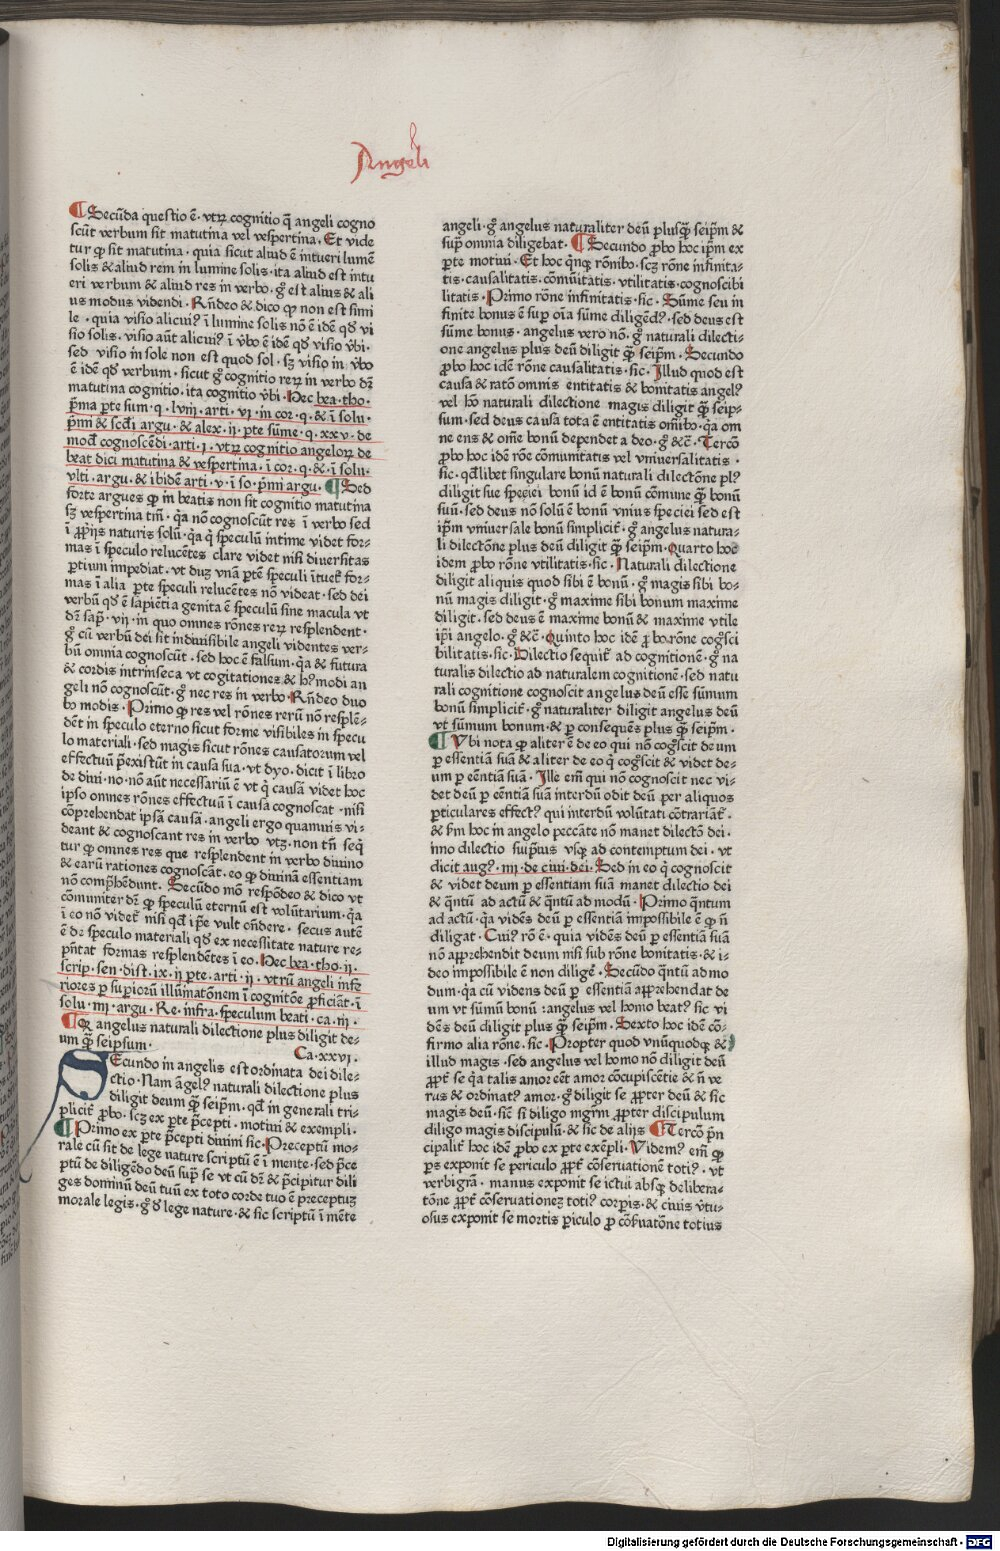 Angeli
¶ Secūda questio ē · vtrꝝ cognitio q̄ angeli cogno
scūt verbum sit matutina vel vespertina · Et vide
tur ꝙ sit matutina · quia sicut aliud ē intueri lumē
solis & aliud rem in lumine solis · ita aliud est intu
eri verbum & aliud res in verbo · gͦ est alius & ali
us modus videndi · Rn̄deo & dico ꝙ non est simi
le · quia visio alicuiꝰ ī lumine solis nō ē idē qđ vi
sio solis · visio aūt alicuiꝰ ī v̄bo ē idē qđ visio v̄bi ·
sed visio in sole non est quod sol · sꝫ visio in v̄bo
ē idē qđ verbum · sicut gͦ cognitio reꝝ in verbo dꝛ
matutina cognitio · ita cognitio v̄bi · Hec bea · tho ·
p̄ma ꝑte sum · q · lviij · arti · vi · in cor · q · & ī solu ·
p̄mi & scđi argu · & alex · ij · ꝑte sūme · q · xxv · de
mođ cognoscēdi · arti · j · vtrꝝ cognitio angeloꝝ de
beat dici matutina & vespertina · ī cor · q · & ī solu ·
vlti · argu · & ibidē arti · v · ī so · p̄mi argu · ¶ Sed
forte argues ꝙ in beatis non sit cognitio matutina
sꝫ vespertina tm̄ · q̇a nō cognoscūt res ī verbo sed
ī ꝓprijs naturis solū · q̇a q̇ speculū intime videt for-
mas ī speculo relucētes clare videt nisi diuersitas
ꝑtium impediat · vt duꝫ vnā ꝑtē speculi ītuet̄ for-
mas ī alia ꝑte speculi relucētes nō videat · sed dei
verbū qđ ē sapiētia genita ē speculū sine macula vt
dꝛ sap̄ · vij · in quo omnes rōnes reꝝ resplendent ·
gͦ cū verbū dei sit indiuisibile angeli videntes ver-
bū omnia cognoscūt · sed hoc ē falsum · q̇a & futura
& cordis intrinseca vt cogitationes & hꝰmodi an
geli nō cognoscūt · gͦ nec res in verbo · Rn̄deo duo
bꝰ modis · Primo ꝙ res vel rōnes rerū nō resplē-
dēt in speculo eterno sicut forme visibiles in specu
lo materiali · sed magis sicut rōnes causatorum vel
effectuū p̄existūt in causa sua · vt dyo · dicit ī libro
de diui · no · nō aūt necessariū ē vt q̇ causā videt hoc
ipso omnes rōnes effectuū ī causa cognoscat · nisi
cōprehendat ipsā causā · angeli ergo quamuis vi-
deant & cognoscant res in verbo vtꝫ · non tn̄ seq̇
tur ꝙ omnes res que resplendent in verbo diuino
& earū rationes cognoscāt · eo ꝙ diuinā essentiam
nō comp̄hēdunt · Secūdo mō respōdeo & dico vt
cōmuniter dꝛ ꝙ speculū eternū est volūtarium · q̇a
ī eo nō videt̄ nisi qđ ip̄e vult on̄dere · secus autē
ē dꝛ speculo materiali qđ ex necessitate nature re-
p̄ntat formas resplendētes ī eo · Hec bea · tho · ij ·
scrip · sen · dist · ix · ij ꝑte · arti · ij · vtrū angeli infe
riores ꝑ suꝑiorū illūmatōnem ī cognitōe ꝓficiāt · ī
solu · iiij · argu · Re · infra · speculum beati · ca · iij ·
¶ Qꝙ angelus naturali dilectione plus diligit de-
um q̄ꝫ seipsum · Ca · xxvi ·
Secundo in angelis est ordinata dei dile-
ctio · Nam āgelꝰ naturali dilectione plus
diligit deum q̄ꝫ seip̄m · qđ in generali tri-
plicit̄ ꝓbo · scꝫ ex ꝑte p̄cepti · motiui & exempli ·
¶ Primo ex ꝑte p̄cepti diuini sic · Preceptū mo-
rale cū sit de lege nature scriptū ē ī mente · sed p̄ce
ptū de diligēdo deū suꝑ se vt cū dꝛ & p̄cipitur dili
ges dominū deū tuū ex toto corde tuo ē preceptuꝫ
morale legis · gͦ đ lege nature · & sic scriptū ī mēte
angeli · gͦ angelus naturaliter deū plusq̄ꝫ seip̄m &
suꝑ omnia diligebat · ¶ Secundo ꝓbo hoc ip̄m ex
ꝑte motiui · Et hoc q̇nqꝫ rōnibꝰ · scꝫ rōne infinita-
tis · causalitatis · cōmūitatis · vtilitatis · cognoscibi
litatis · Primo rōne infinitatis · sic · Sūme seu in
finite bonus ē suꝑ oīa sūme diligēdꝰ · sed deus est
sūme bonus · angelus vero nō · gͦ naturali dilecti-
one angelus plus deū diligit q̄ꝫ seip̄m · Secundo
ꝓbo hoc idē rōne causalitatis · sic · Illud quod est
causa & ratō omnis entitatis & bonitatis angelꝰ
vel hō naturali dilectione magis diligit q̄ꝫ seip-
sum · sed deus causa tota ē entitatis om̄ibꝰ · q̇a om
ne ens & om̄e bonū dependet a deo · gͦ &c̄ · Tercō
ꝓbo hoc idē rōe cōmunitatis vel vniuersalitatis ·
sic · qđlibet singulare bonū naturali dilectōne plꝰ
diligit sue speciei bonū id ē bonū cōmune ꝙ bonū
suū · sed deus nō solū ē bonū vnius speciei sed est
ip̄m vniuersale bonū simplicit̄ · gͦ angelus natura-
li dilectōne plus deū diligit q̄ꝫ seip̄m · Quarto hoc
idem ꝓbo rōne vtilitatis · sic · Naturali dilectione
diligit aliquis quod sibi ē bonū · gͦ magis sibi bo-
nū magis diligit · gͦ maxime sibi bonum maxime
diligit · sed deus ē maxime bonū & maxime vtile
ip̄i angelo · gͦ &c̄ · Quinto hoc idē ꝓbo rōne cogͦsci
bilitatis · sic · Dilectio sequit̄ ad cognitionē · gͦ na
turalis dilectio ad naturalem cognitionē · sed natu
rali cognitione cognoscit angelus deū esse sūmum
bonū simplicit̄ · gͦ naturaliter diligit angelus deū
vt sūmum bonum · & ꝑ consequēs plus q̄ꝫ seip̄m ·
¶ Vbi nota ꝙ aliter ē de eo qui nō cogͦscit deum
ꝑ essentiā suā & aliter de eo q̇ cogͦscit & videt de-
um ꝑ eēntiā suā · Ille em̄ qui nō cognoscit nec vi-
det deū ꝑ eēntiā suā interdū odit deū per aliquos
ꝑticulares effectꝰ qui interdū volūtati cōtrariāt̄ ·
& ẜm hoc in angelo peccāte nō manet dilectō dei ·
īmo dilectio suip̄ius vsqꝫ ad contemptum dei · vt
dicit augꝰ · iiij · de ciui · dei · Sed in eo q̇ cognoscit
& videt deum ꝑ essentiam suā manet dilectio dei
& q̄ntū ad actū & q̄ntū ad modū · Primo q̄ntum
ad actū · q̇a vidēs deū ꝑ essentiā impossibile ē ꝙ n̄
diligat · Cuiꝰ rō ē · quia vidēs deū ꝑ essentiā suā
nō apprehendit deum nisi sub rōne bonitatis · & i-
deo impossibile ē non diligē · Secūdo q̄ntū ad mo
dum · q̇a cū videns deū ꝑ essentiā apprehendat de
um vt sūmū bonū : angelus vel homo beatꝰ sic vi
dēs deū diligit plus q̄ꝫ seip̄m · Sexto hoc idē cō-
firmo alia rōne · sic · Propter quod vnūquodqꝫ &
illud magis · sed angelus vel homo nō diligit deū
ꝓpt̄ se q̇a talis amor eēt amor cōcupiscētie & n̄ ve
rus & ordinatꝰ amor · gͦ diligit se ꝓpter deū & sic
magis deū · sic̄ si diligo mgr̄m ꝓpter discipulum
diligo magis discipulū · & sic de alijs ¶ Tercō p̄n
cipalit̄ hoc idē ꝓbo ex ꝑte exēpli · Videmꝰ em̄ ꝙ
ꝑs exponit se periculo ꝓpt̄ cōseruationē totiꝰ · vt
verbigrā · manus exponit se ictui absqꝫ delibera-
tōne ꝓpt̄ cōseruationeꝫ totiꝰ corꝑis · & ciuis v̄tu-
osus exponit se mortis ꝑiculo ꝓ cōẜuatōne totius
Digitalisierung gefördert durch die Deutsche Forschungsgemeinschaft - DFG